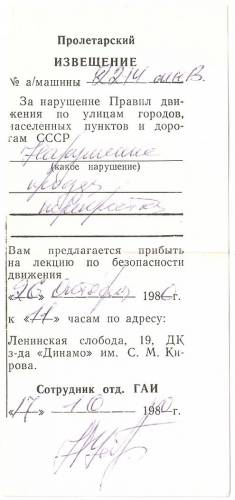 Пролетарский
ИЗВЕЩЕНИЕ
№ а/машины 8214
За нарушение Правил дви-
жения по улицам городов,
населенных пунктов и доро-
гам СССР
Нарушение
(какое нарушение)
проезда
перекрестка
Вам предлагается прибыть
на лекцию по безопасности
движения
«26» октября 1980г.
к «11» часам по адресу:
Ленинская слобода, 19, ДК
з-да «Динамо» им. С. М. Ки-
рова.
Сотрудник отд. ГАИ
«17» 10 1980г.